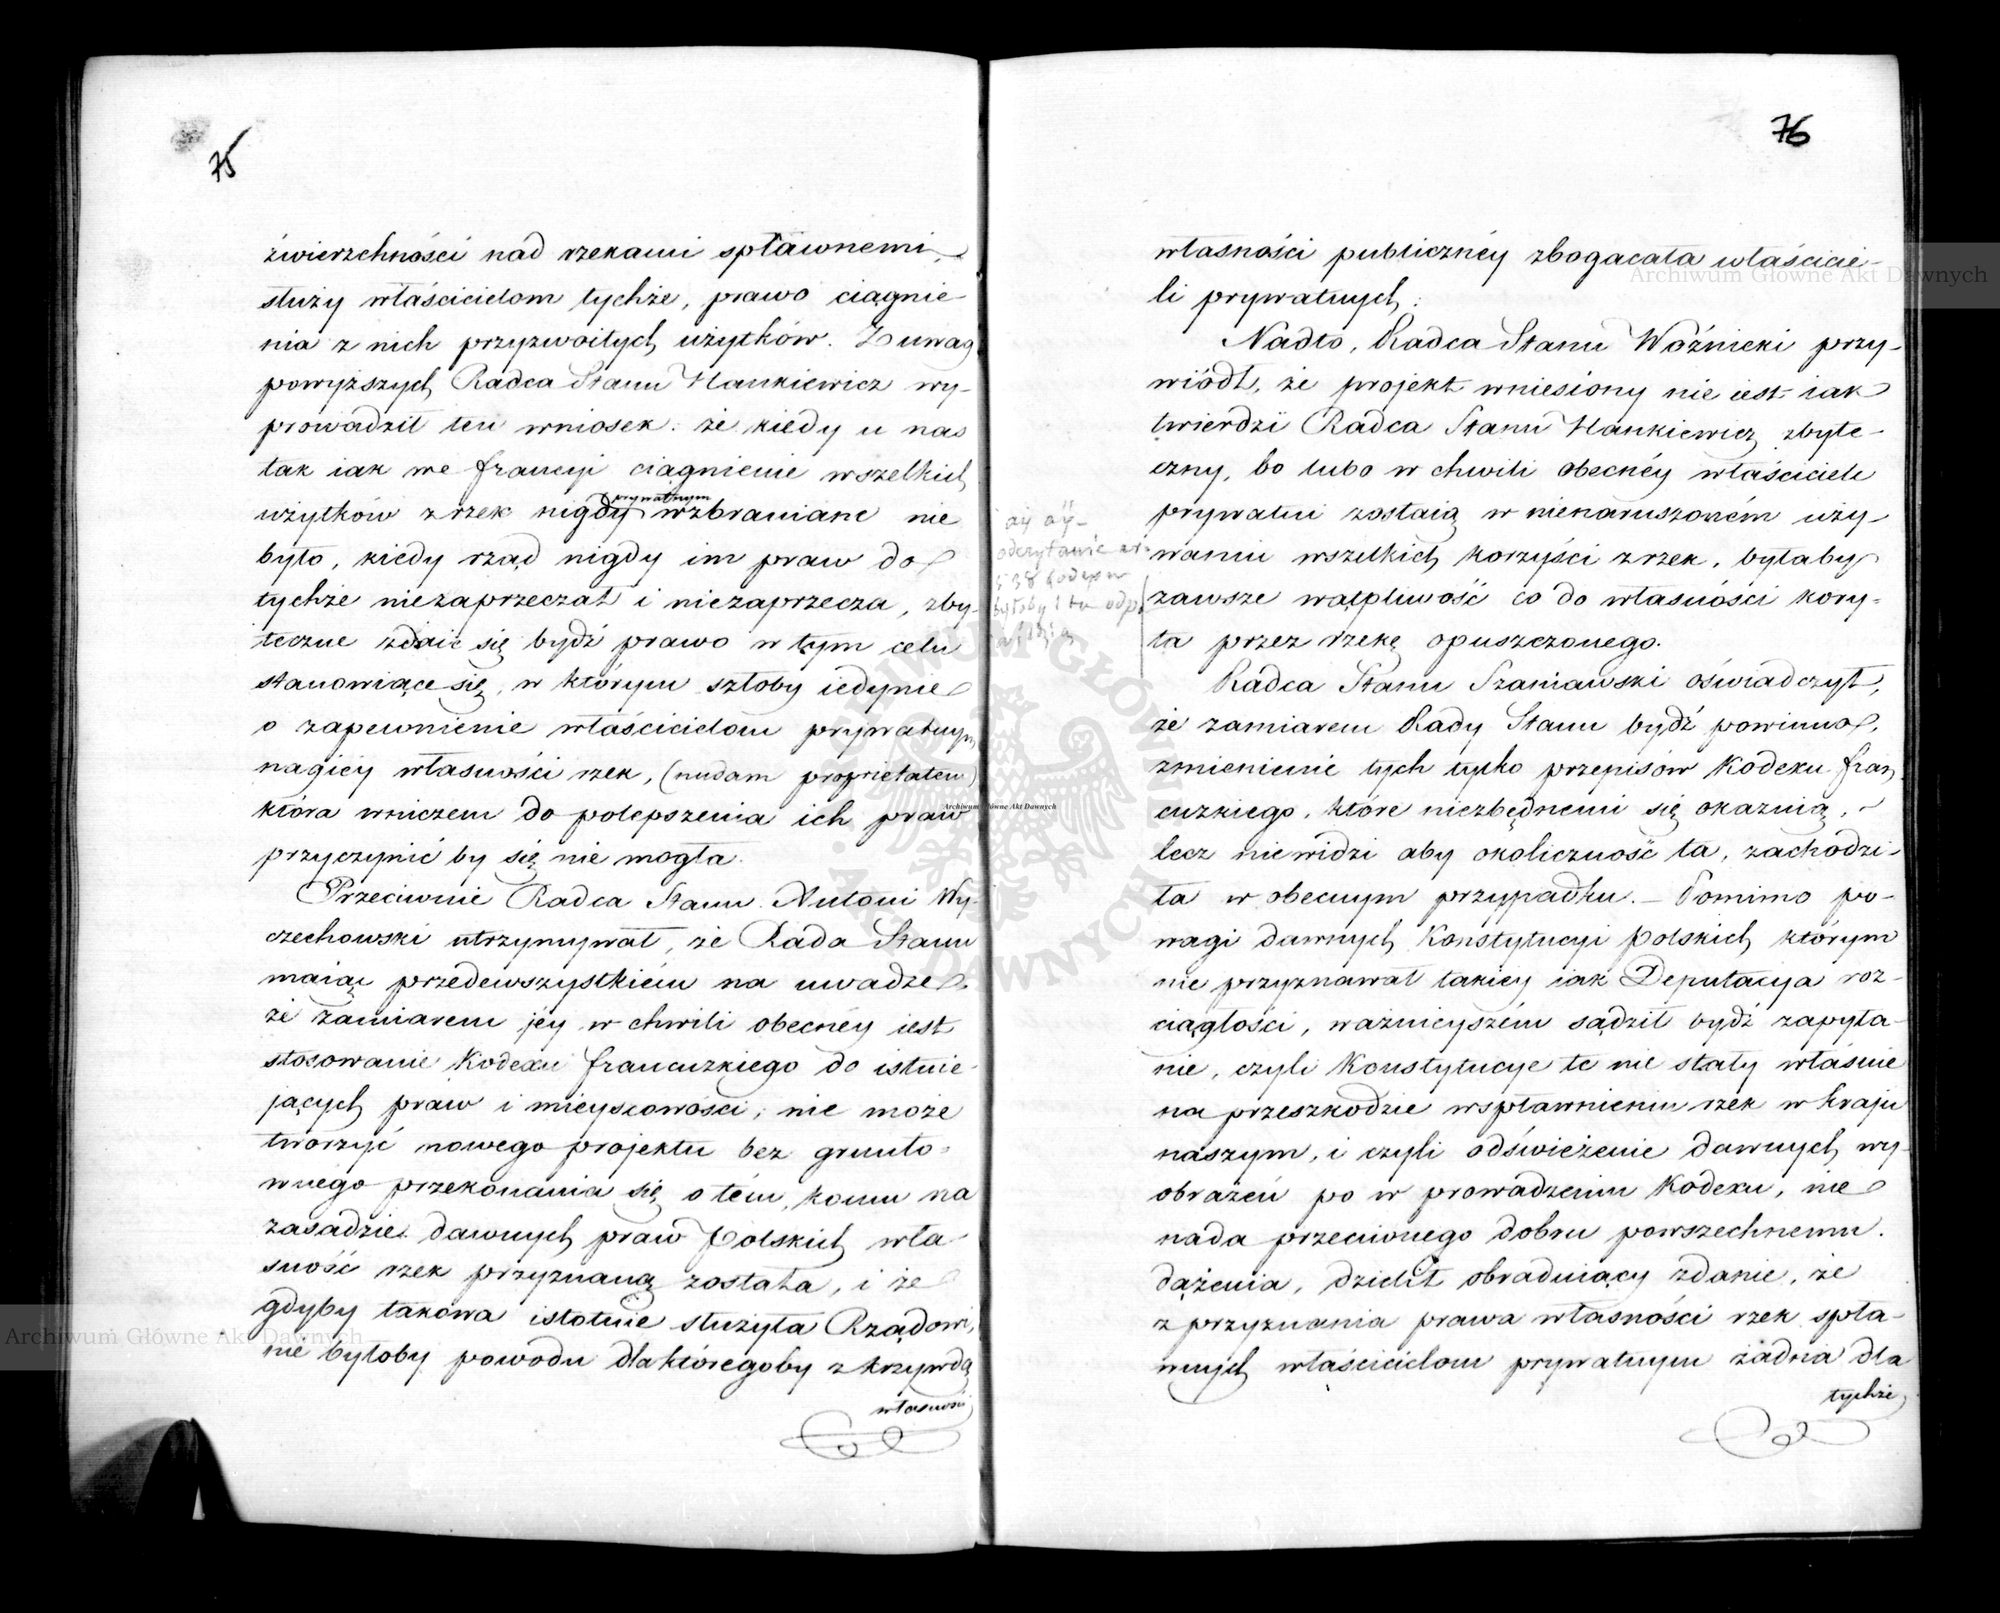 75
źwierzchności nad rzekami spławnemi,
służy właścicielom tychże, prawo ciągnie-
nia z nich przyzwoitych użytków. Z uwag
powyższych Radca Stanu Hankiewicz wy-
prowadził ten wniosek: że kiedy u nas
tak iak we francyi ciągnienie wszelkich
użytków z rzek nigdy prywatnym wzbraniane nie
było, kiedy rząd nigdy im praw do
tychże niezaprzeczał i niezaprzecza, zby-
teczne zdaie się bydź prawo w tym celu
stanowiące się, w którym szłoby iedynie
o zapewnienie właścicielom prywatnym
nagiey własności rzek, (nudam proprietatem)
która wniczem do polepszenia ich praw
przyczynić by się nie mogła.
Przeciwnie Radca Stanu Antoni Wy-
czechowski utrzymywał, że Rada Stanu
maiąc przedewszystkiém na uwadze,
że zamiarem jéy w chwili obecnéy iest
stosowanie Kodexu francuzkiego do istnie-
jących praw i mieyscowości, nie może
tworzyć nowego projektu bez grunto-
wnego przekonania się o tém, komu na
zasadzie dawnych praw Polskich wła-
sność rzek przyznaną została, i że
gdyby takowa istotnie służyła Rządowi,
nie byłoby powodu dla któregoby z krzywdą
własności
76
własności publicznéy zbogacała właścicie-
li prywatnych.
Nadto, Radca Stanu Woźnicki przy-
wiódł, że projekt wniesiony nie iest iak
twierdzi Radca Stanu Hankiewicz zbyte-
czny, bo lubo w chwili obecnéy właściciele
prywatni zostaią w nienaruszoném uży-
waniu wszelkich korzyści z rzek, byłaby
zawsze wątpliwość co do własności kory-
ta przez rzekę opuszczonego.
odczytanie
538 Kodexu
Radca Stanu Szaniawski oświadczył,
że zamiarem Rady Stanu bydź powinno,
zmienienie tych tylko przepisów Kodexu fran
cuzkiego, które niezbędnemi się okażuią,
lecz nie widzi aby okoliczność ta, zachodzi-
ła w obecnym przypadku. — Pomimo po-
wagi dawnych Konstytucyi Polskich którym
nie przyznawał takiey iak Deputacya roz-
ciągłości, ważnieyszém sądził bydź zapyta-
nie, czyli Konstytucye te nie stały właśnie
na przeszkodzie wspławnieniu rzek w kraju
naszym, i czyli odświeżenie dawnych wy-
obrażeń po w prowadzeniu Kodexu, nie
nada przeciwnego dobru powszechnemu
dążenia, dzielił obraduiący zdanie, że
z przyznania prawa własności rzek spła-
wnych właścicielom prywatnym żadna dla
tychże
Archiwum Główne Akt Dawnych
Archiwum Główne Akt Dawnych
Archiwum Główne Akt Dawnych
ARCHIWUM GŁÓWNE AKT DAWNYCH